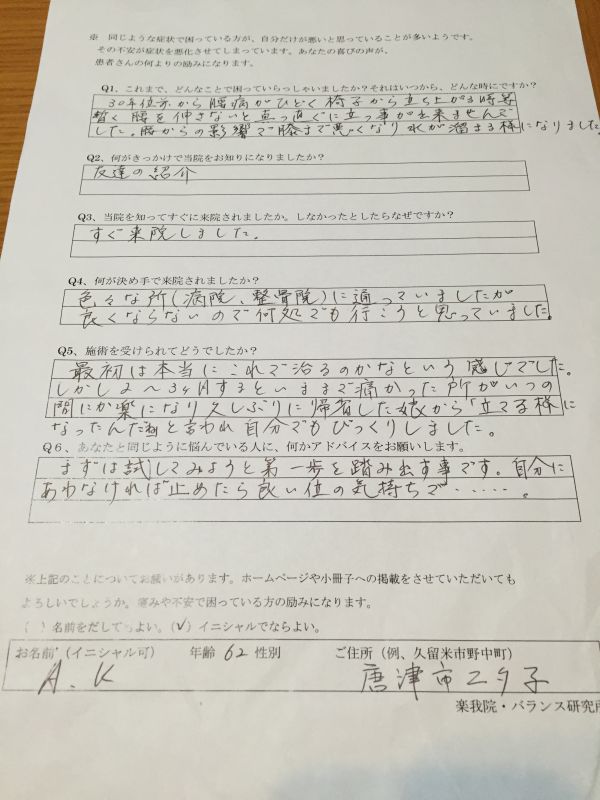 ※ 同じような症状で困っている方が、自分だけが悪いと思っていることが多いようです。
その不安が症状を悪化させてしまっています。あなたの喜びの声が、
患者さんの何よりの励みになります。
Q1、これまで、どんなことで困っていらっしゃいましたか？それはいつから、どんな時にですか？
30年位前から腰痛がひどく椅子から立ち上がる時暫
暫く腰を伸さないと真っ直ぐに立つ事が出来ませんで
した。腰からの影響で膝まで悪くなり水が溜まる様になりました
Q2、何がきっかけで当院をお知りになりましたか？
友達の紹介
Q3、当院を知ってすぐに来院されましたか。しなかったとしたらなぜですか？
すぐ来院しました。
Q4、何が決め手で来院されましたか？
色々な所(病院、整骨院)に通っていましたが
良くならないので何処でも行こうと思っていました。
Q5、施術を受けられてどうでしたか？
最初は本当にこれで治るのかなという感じでした。
しかし2〜3ヶ月するといままで痛かった所がいつの
間にか楽になり久しぶりに帰省した娘から「立てる様に
なったんだね」と言われ自分でもびっくりしました。
Q6、あなたと同じように悩んでいる人に、何かアドバイスをお願いします。
まずは試してみようと第一歩を踏み出す事です。自分に
あわなければ止めたら良い位の気持ちで‥‥‥。
※上記のことについてお願いがあります。ホームページや小冊子への掲載をさせていただいても
よろしいでしょうか。痛みや不安で困っている方の励みになります。
( ) 名前をだしてもよい。(✓) イニシャルでならよい。
お名前 (イニシャル可) 年齢 62 性別 ご住所（例、久留米市野中町）
A.K 唐津市二タ子
楽我院・バランス研究所